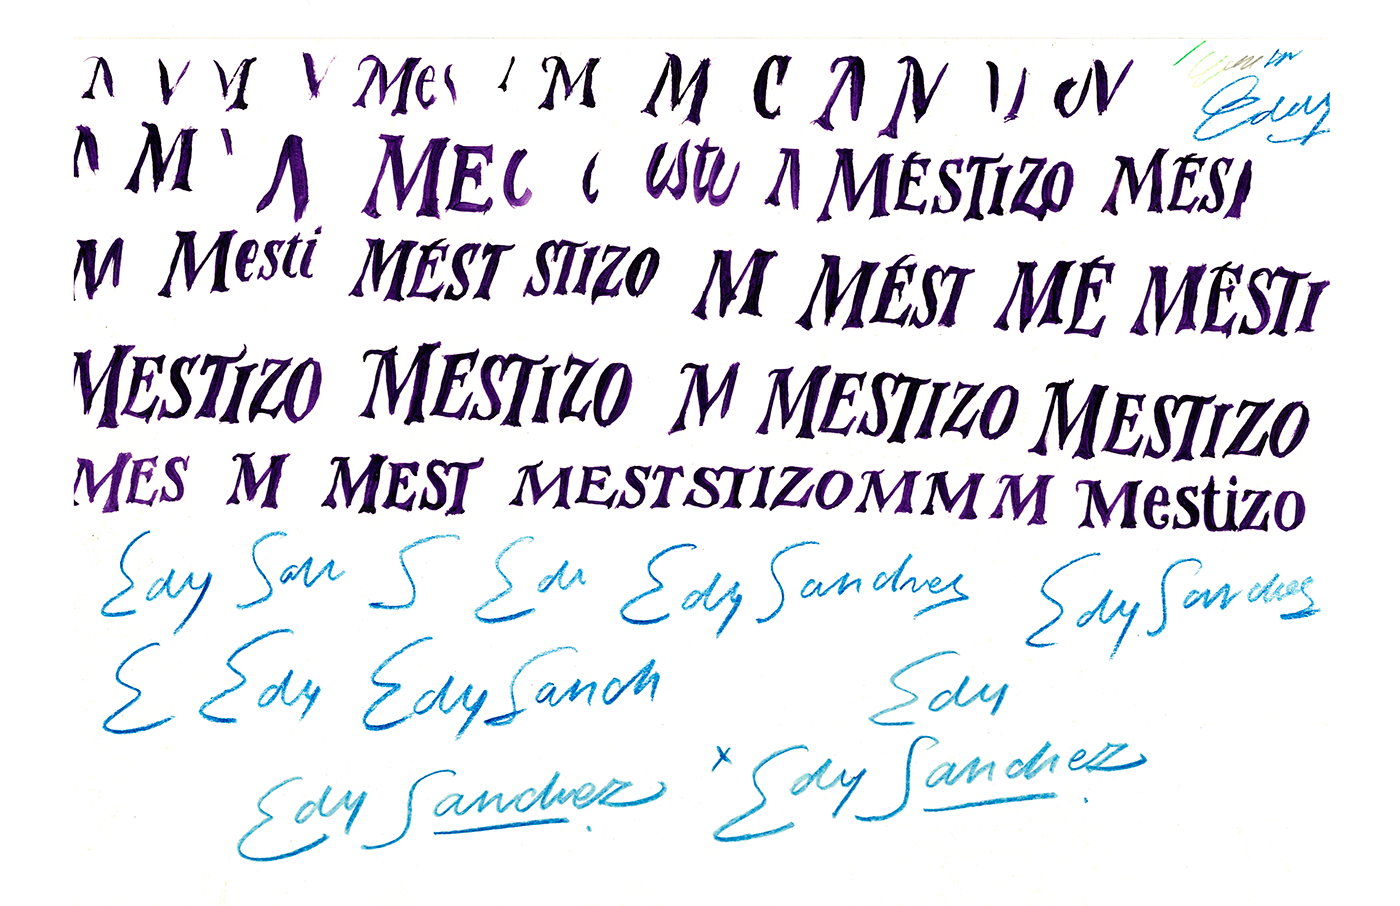 Λ V M V Mes M M C Λ N N
M Λ MEC este Λ MESTIZO MES
M Mesti MEST STIZO M MEST ME MESTI
MESTIZO MESTIZO M MESTIZO MESTIZO
MES M MEST MESTSTIZO M M M Mestizo
Edy
Edy San S Edy Sanchez Edy Sanchez
E Edy Edy Sanch Edy
Edy Sanchez x Edy Sanchez